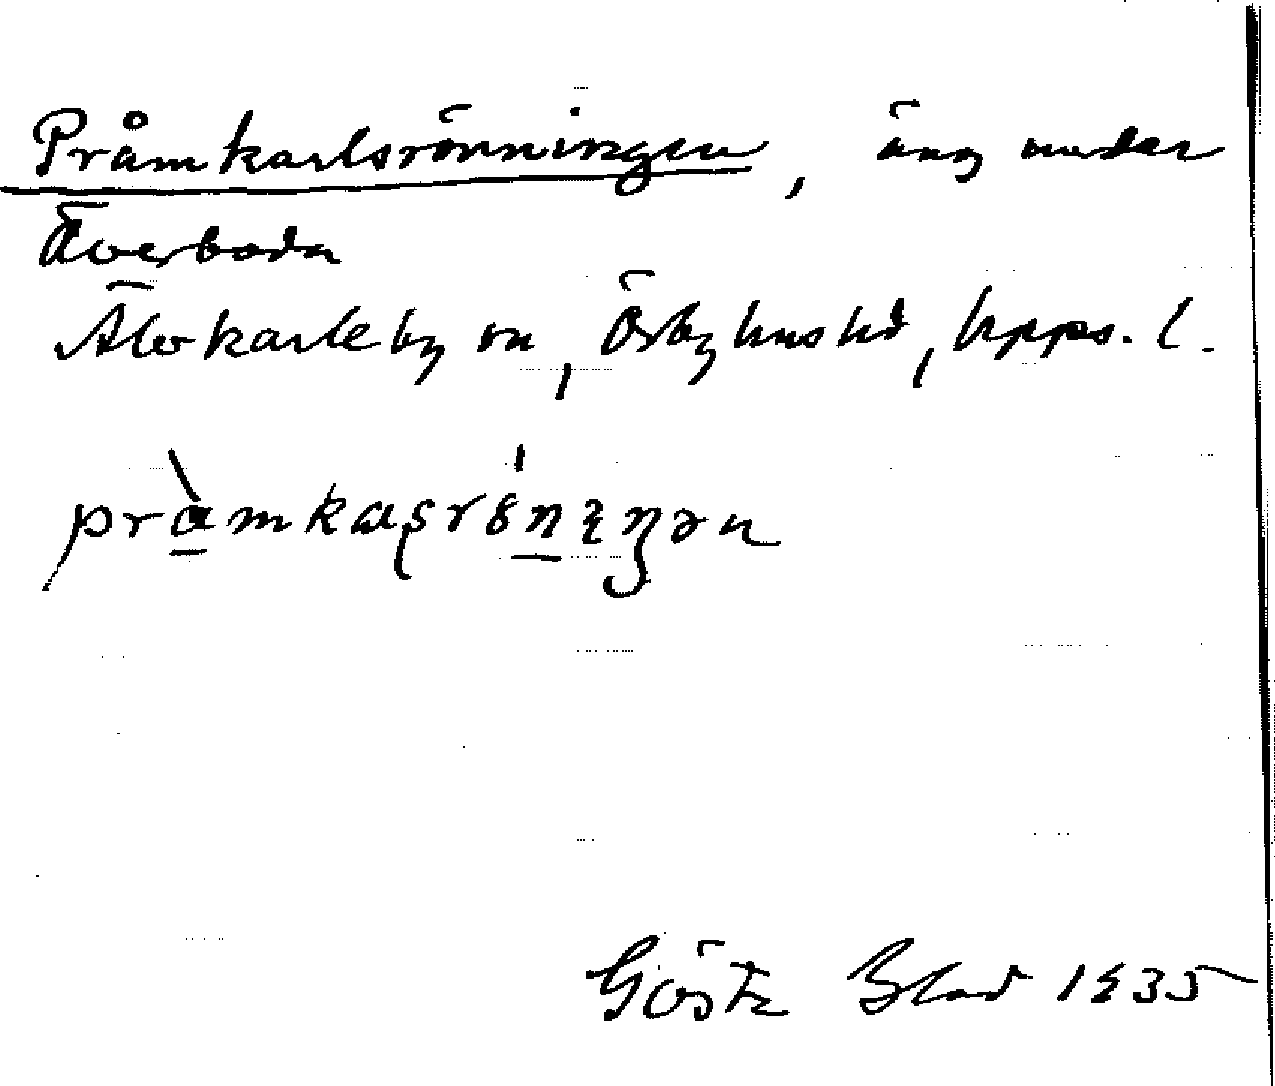 Pråmkarlsrönningen, äng under
Överboda
Älvkarleby sn, Örbyhus hd, Upps. l.
pràmkaʂrö́nıŋən
Gösta Blad 1935